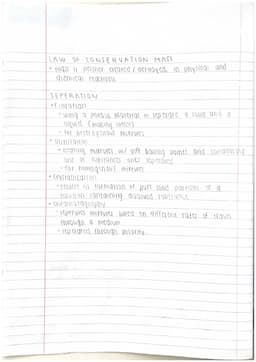 LAW OF CONSERVATION MASS
• mass is neither created/destroyed in physical and
chemical reactions
SEPERATION
• Filtration
- using a porous material to separate a solid and a
liquid (making coffee)
- for heterogenous mixtures
• Distillation
- heating mixtures w/ diff boiling points and
use of substances
- for homogenous mixtures
• Crystallization
- results in formation of pure solid particles of a
solution containing dissolved substance
• Chromatography
- seperates mixtures based on different rates of travel
through a medium
- seperated through polarity